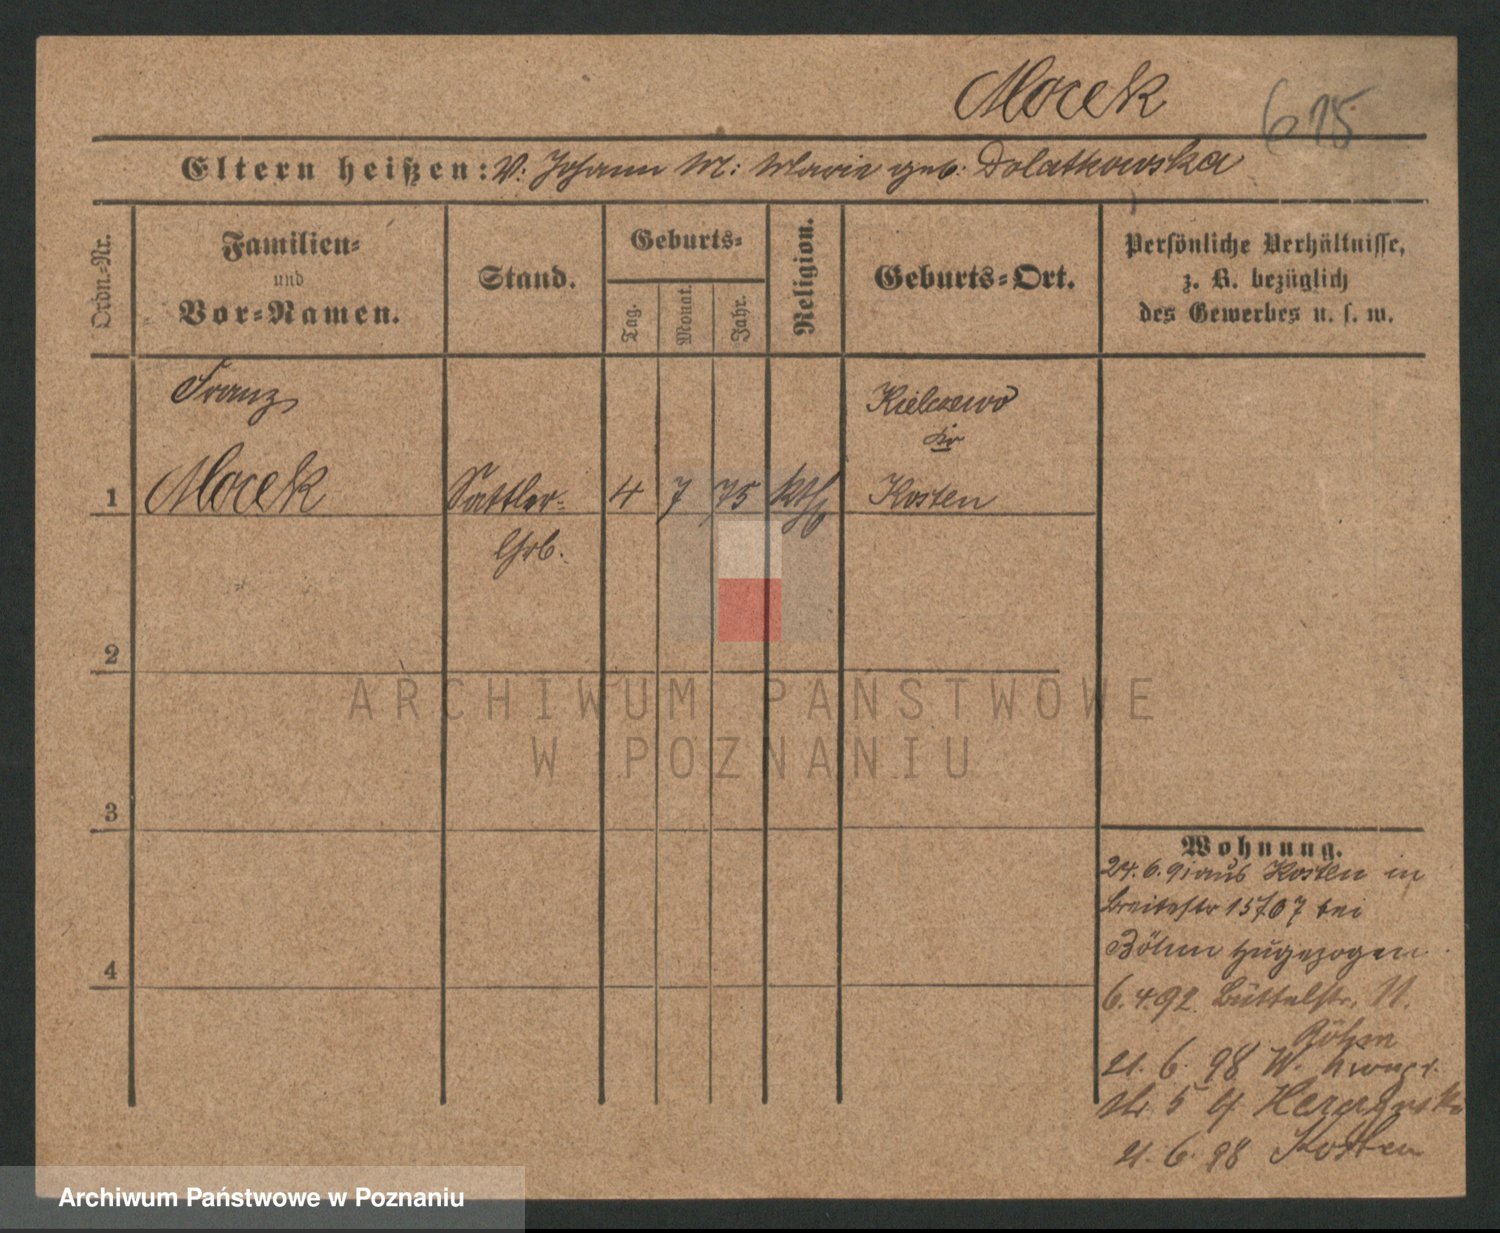 Mocek
615
Eltern heißen: V: Johann M: Marie geb. Dolatkowska
Ordn.-Nr.
Familien-
und
Vor-Namen.
Stand.
Geburts-
Tag.
Monat.
Jahr.
Religion.
Geburts-Ort.
Persönliche Verhältnisse,
z. B. bezüglich
des Gewerbes u. s. w.
Franz
Kielczewo
Kr
1 Mocek Sattler- 4 7 75 kth Kosten
2
3
4
Wohnung.
24. 6. 91 aus Kosten in
Breitestr 15/07 bei
Böhm zugezogen
6. 4. 92 Büttelstr. 11.
Böhm
21. 6. 98 W.
5
21. 6. 98 Kosten
ARCHIWUM PAŃSTWOWE
W POZNANIU
Archiwum Państwowe w Poznaniu